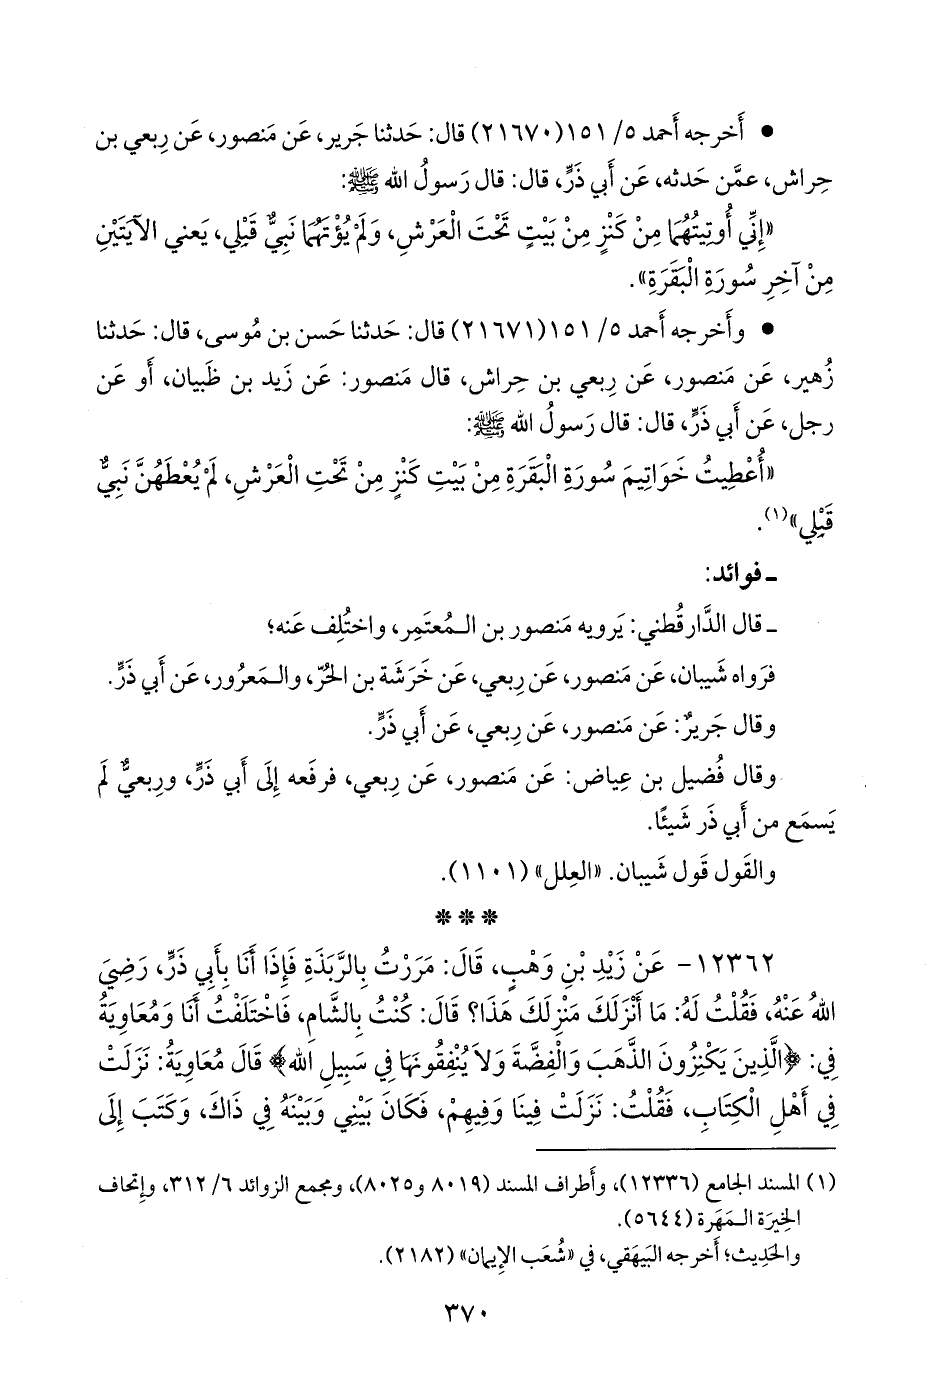 • أَخرجه أَحمد ٥/ ١٥١(٢١٦٧٠) قال: حَدثنا جَرير، عَن مَنصور، عَن رِبعي بن
حِراش، عمَّن حَدثه، عَن أَبي ذَرٍّ، قال: قال رَسولُ الله ﷺ:
«إِنِّي أُوتِيتُهُمَا مِنْ كَنْزٍ مِنْ بَيْتٍ تَحْتَ الْعَرْشِ، وَلَمْ يُؤْتَهُمَا نَبِيٌّ قَبْلِي، يَعني الآيَتَيْنِ
مِنْ آخِرِ سُورَةِ الْبَقَرَةِ».
• وأَخرجه أَحمد ٥/ ١٥١(٢١٦٧١) قال: حَدثنا حَسن بن مُوسى، قال: حَدثنا
زُهير، عَن مَنصور، عَن رِبعي بن حِراش، قال مَنصور: عَن زَيد بن ظَبيان، أَو عَن
رجل، عَن أَبي ذَرٍّ، قال: قال رَسولُ الله ﷺ:
«أُعْطِيتُ خَوَاتِيمَ سُورَةِ الْبَقَرَةِ مِنْ بَيْتِ كَنْزٍ مِنْ تَحْتِ الْعَرْشِ، لَمْ يُعْطَهُنَّ نَبِيٌّ
قَبْلِي»(١).
ـ فوائد:
ـ قال الدَّارقُطني: يَرويه مَنصور بن الـمُعتَمِر، واختُلِف عَنه؛
فرَواه شَيبان، عَن مَنصور، عَن رِبعي، عَن خَرَشَة بن الحُرّ، والـمَعرُور، عَن أَبي ذَرٍّ.
وقال جَريرٌ: عَن مَنصور، عَن رِبعي، عَن أَبي ذَرٍّ.
وقال فُضيل بن عِياض: عَن مَنصور، عَن رِبعي، فرفَعه إِلَى أَبي ذَرٍّ، ورِبعيٌّ لَم
يَسمَع من أَبي ذَر شَيئًا.
والقَول قَول شَيبان. «العِلل» (١١٠١).
* * *
١٢٣٦٢- عَنْ زَيْدِ بْنِ وَهْبٍ، قَالَ: مَرَرْتُ بِالرَّبَذَةِ فَإِذَا أَنَا بِأَبِي ذَرٍّ، رَضِيَ
اللهُ عَنْهُ، فَقُلْتُ لَهُ: مَا أَنْزَلَكَ مَنْزِلَكَ هَذَا؟ قَالَ: كُنْتُ بِالشَّامِ، فَاخْتَلَفْتُ أَنَا وَمُعَاوِيَةُ
فِي: ﴿الَّذِينَ يَكْنِزُونَ الذَّهَبَ وَالْفِضَّةَ وَلاَ يُنْفِقُونَهَا فِي سَبِيلِ الله﴾ قَالَ مُعَاوِيَةُ: نَزَلَتْ
فِي أَهْلِ الْكِتَابِ، فَقُلْتُ: نَزَلَتْ فِينَا وَفِيهِمْ، فَكَانَ بَيْنِي وَبَيْنَهُ فِي ذَاكَ، وَكَتَبَ إِلَى
(١) المسند الجامع (١٢٣٣٦)، وأَطراف المسند (٨٠١٩ و٨٠٢٥)، ومجمع الزوائد ٦/ ٣١٢، وإِتحاف
الخِيرَة الـمَهَرة (٥٦٤٤).
والحَدِيث؛ أَخرجه البَيهَقي، في «شُعَب الإِيمان» (٢١٨٢).
٣٧٠